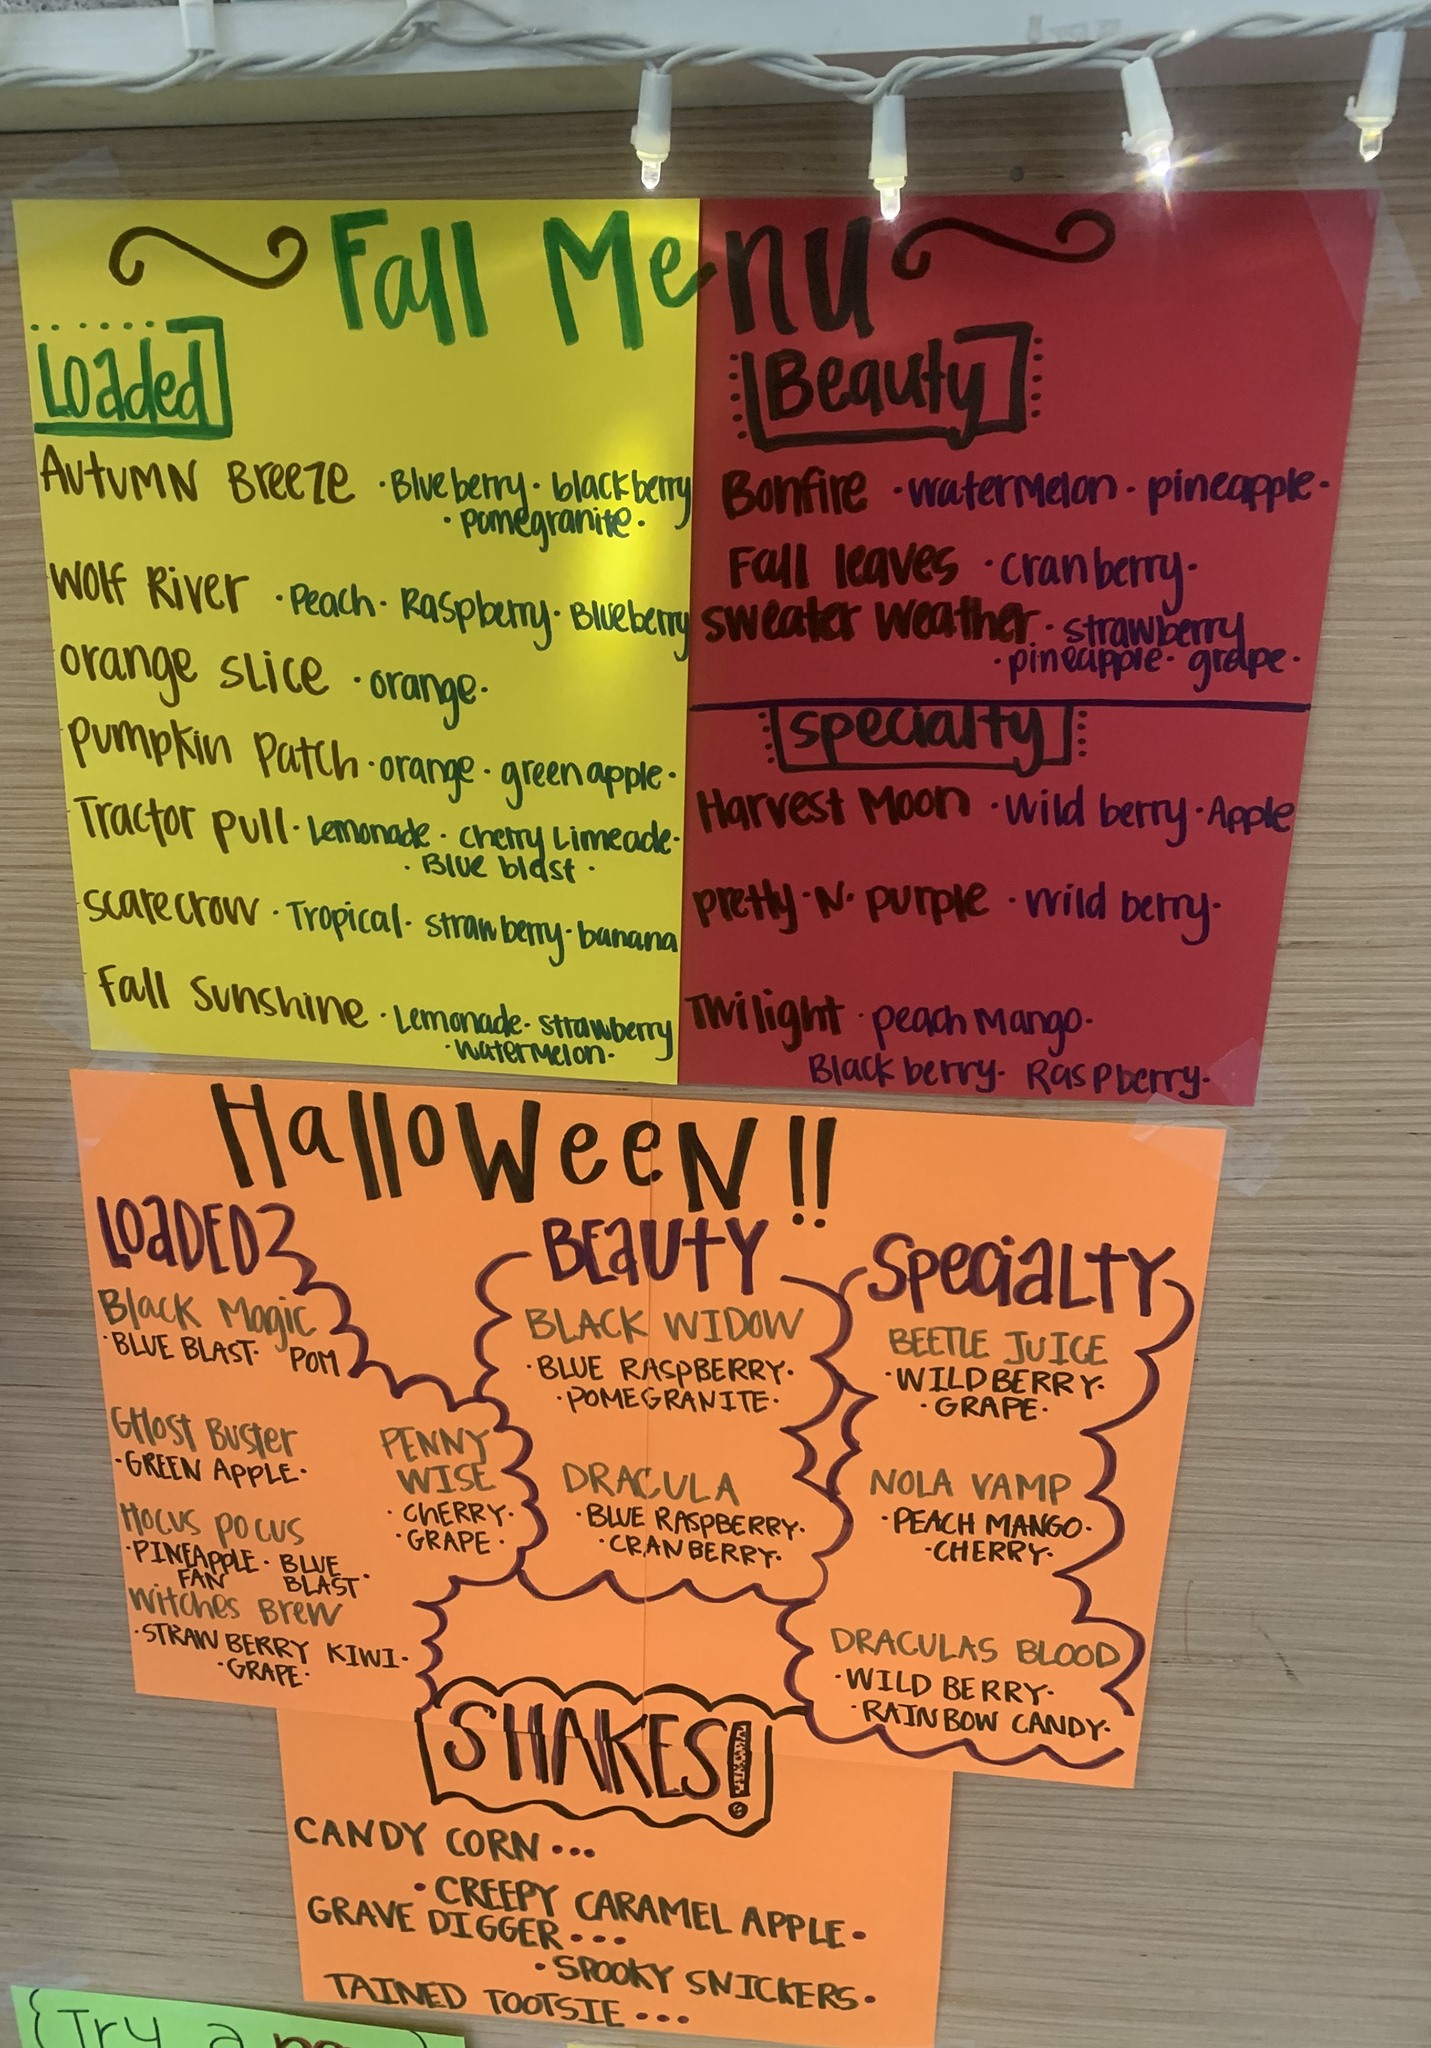 Fall Menu
Loaded
Autumn Breeze · Blueberry · blackberry
· pomegranite ·
Wolf River · Peach · Raspberry · Blueberry
orange slice · orange ·
Pumpkin Patch · orange · green apple ·
Tractor pull · Lemonade · Cherry Limeade ·
· Blue blast ·
scarecrow · Tropical · strawberry · banana
Fall Sunshine · Lemonade · strawberry
· watermelon ·
Beauty
Bonfire · watermelon · pineapple ·
Fall leaves · cranberry ·
sweater weather · strawberry
· pineapple · grape ·
specialty
Harvest Moon · Wild berry · Apple
pretty · N · purple · Wild berry ·
Twilight · peach Mango ·
Blackberry · Raspberry ·
Halloween!!
LOADED
Black Magic
· BLUE BLAST · POM
GHost Buster
· GREEN APPLE ·
Hocus pocus
· PINEAPPLE · BLUE
FAN BLAST ·
Witches Brew
· STRAWBERRY KIWI ·
· GRAPE ·
PENNY
WISE
· CHERRY ·
· GRAPE ·
BEAUTY
BLACK WIDOW
· BLUE RASPBERRY ·
· POMEGRANITE ·
DRACULA
· BLUE RASPBERRY ·
· CRANBERRY ·
SPECIALTY
BEETLE JUICE
· WILDBERRY ·
· GRAPE ·
NOLA VAMP
· PEACH MANGO ·
· CHERRY ·
DRACULAS BLOOD
· WILD BERRY ·
· RAINBOW CANDY ·
SHAKES!
CANDY CORN ...
· CREEPY CARAMEL APPLE ·
GRAVE DIGGER ...
· SPOOKY SNICKERS ·
TAINED TOOTSIE ...
Try a